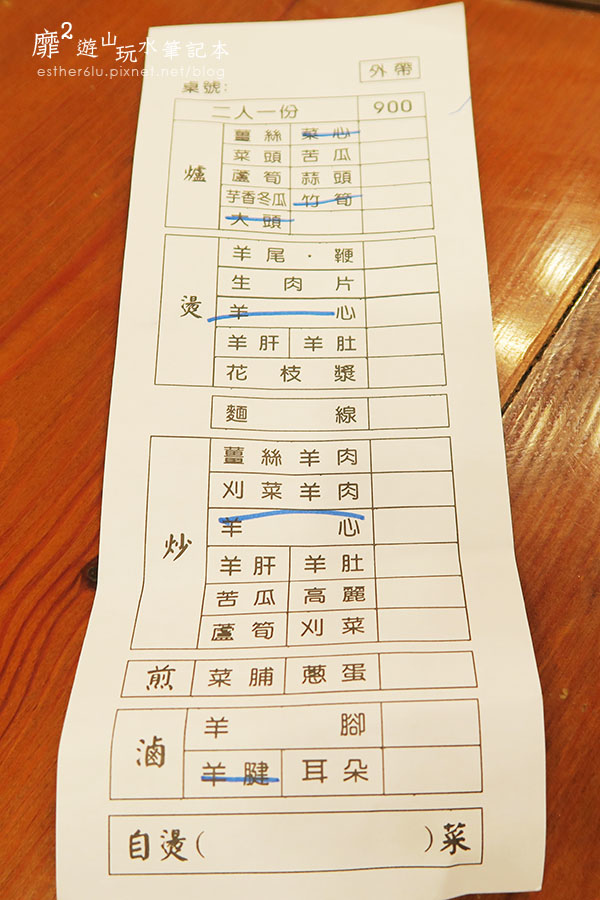 靡2遊山玩水筆記本
esther6lu.pixnet.net/blog
外帶
桌號:
二人一份 900
爐
薑絲 菜心
菜頭 苦瓜
蘆筍 蒜頭
芋香冬瓜 竹筍
大頭
燙
羊尾．鞭
生肉片
羊心
羊肝 羊肚
花枝漿
麵線
炒
薑絲羊肉
刈菜羊肉
羊心
羊肝 羊肚
苦瓜 高麗
蘆筍 刈菜
煎 菜脯 蔥蛋
滷
羊腳
羊腱 耳朵
自燙( )菜